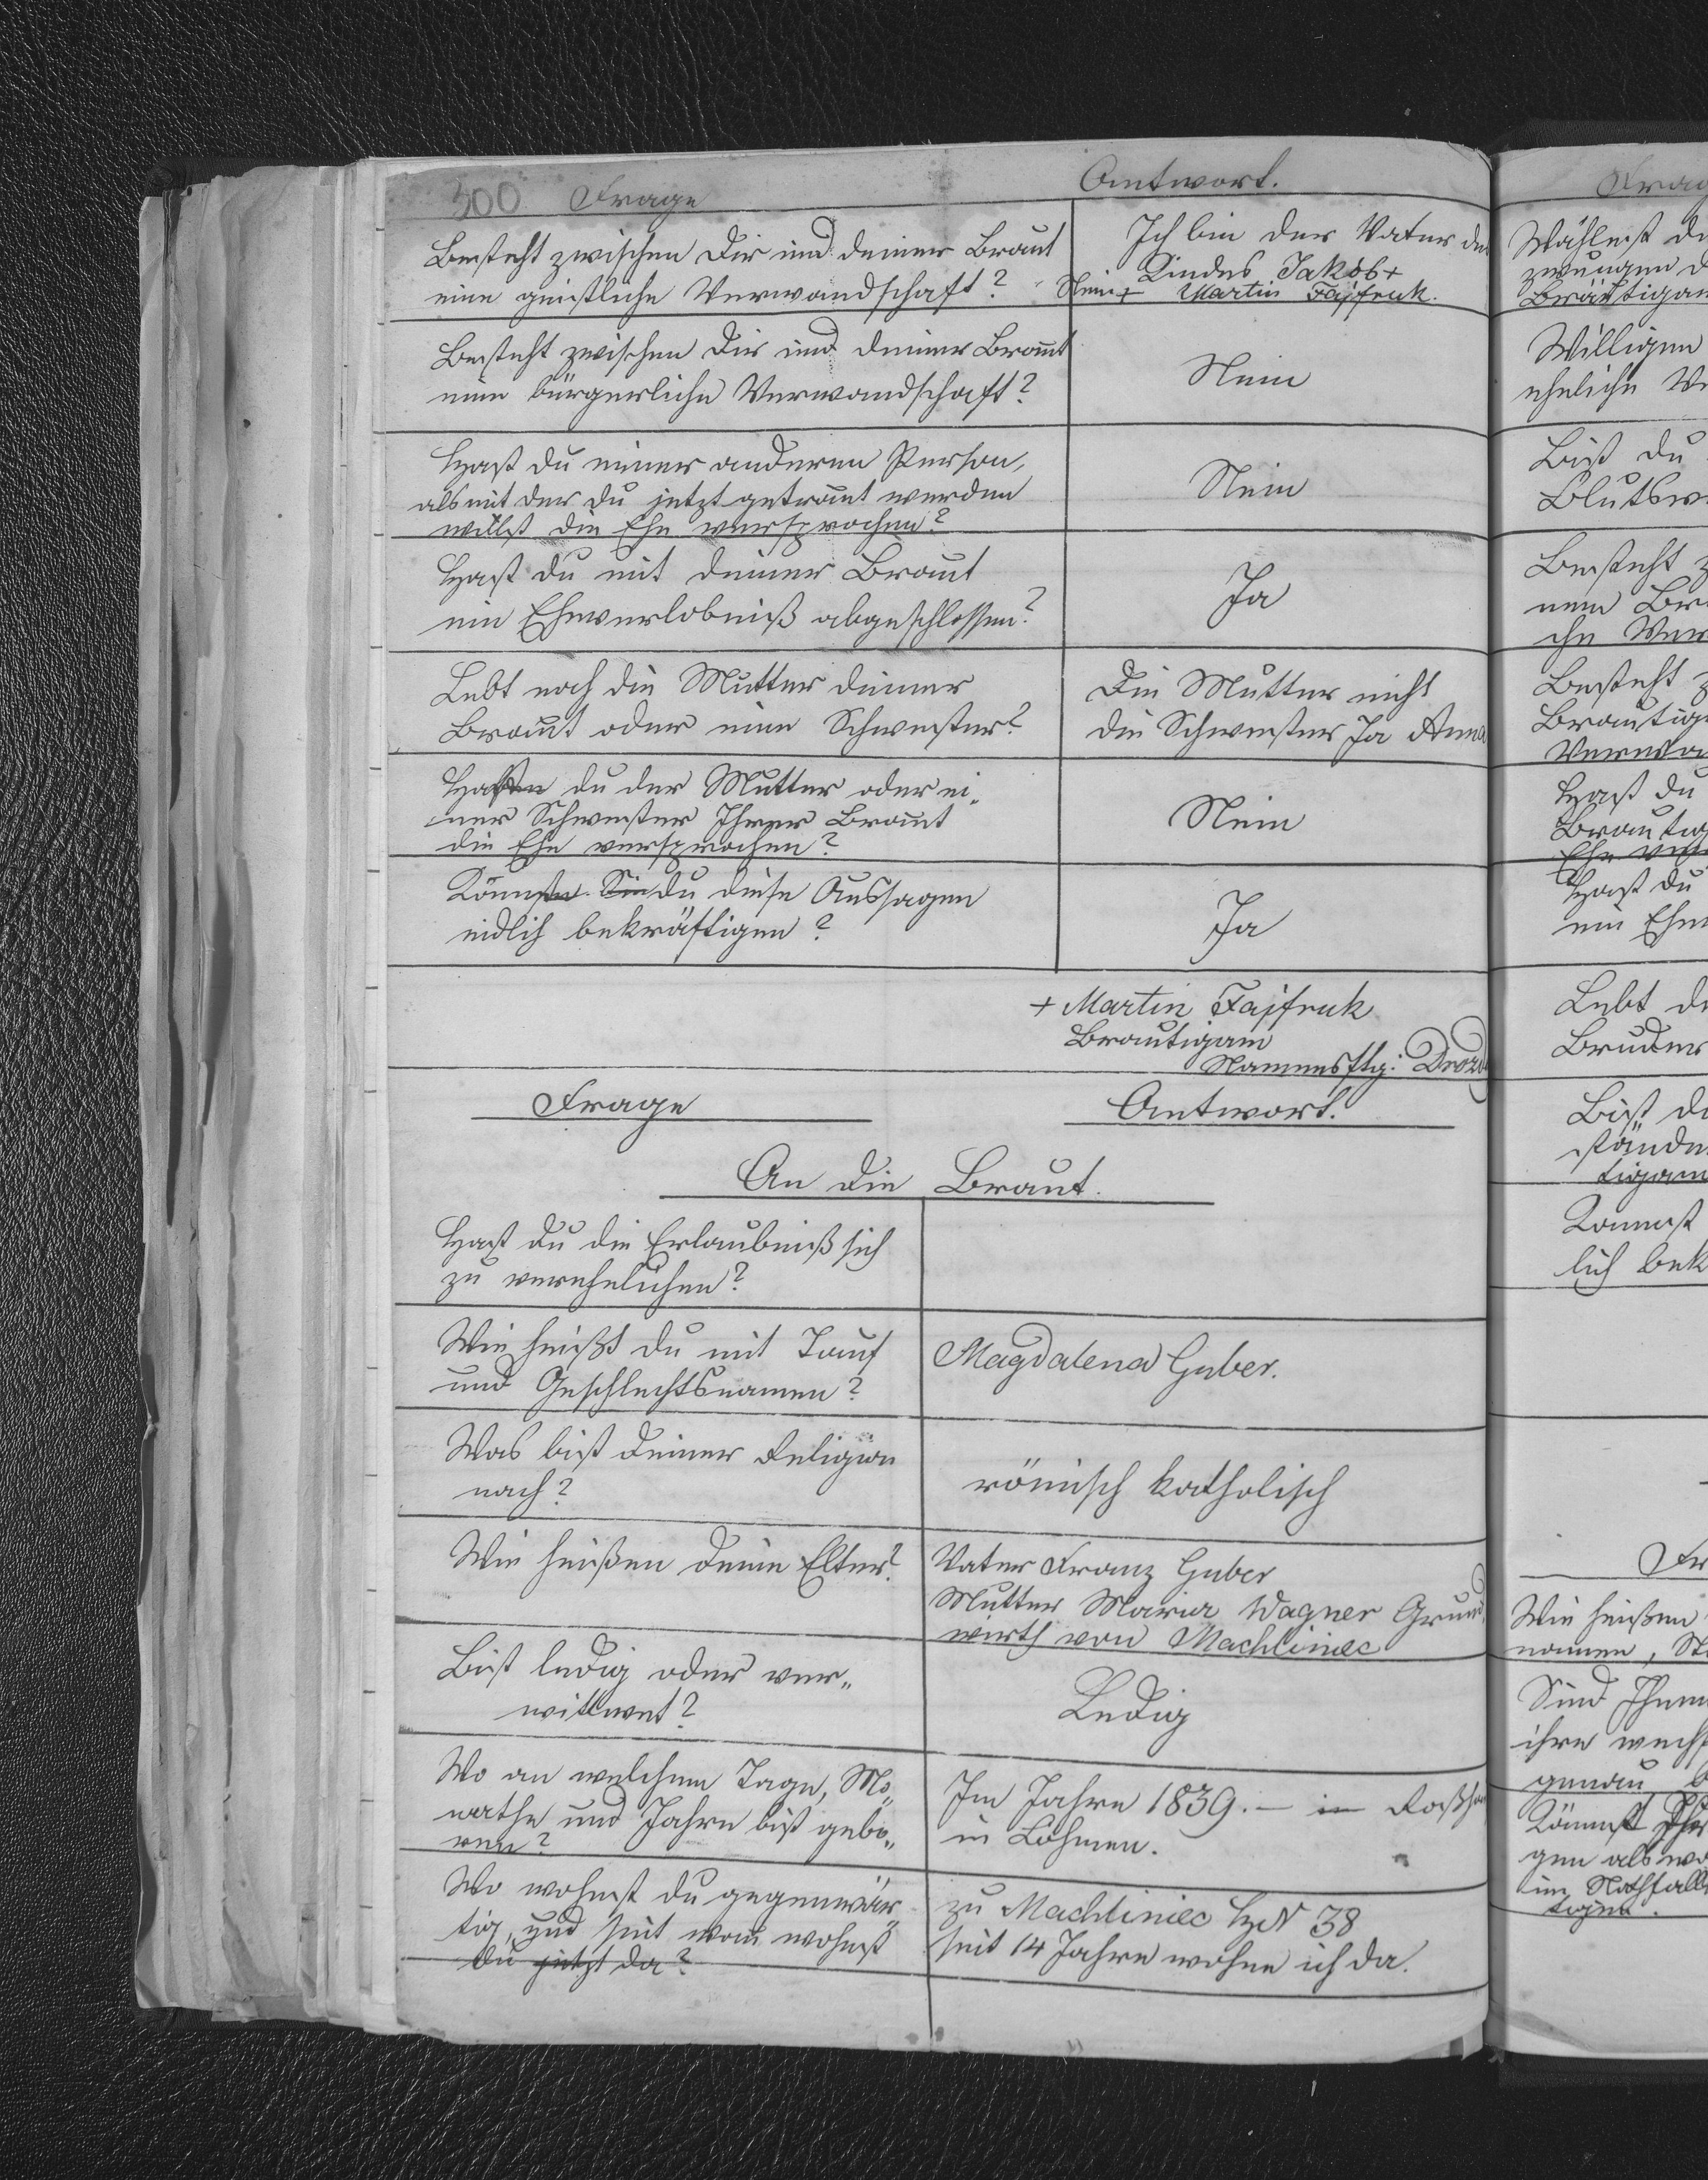 300 Frage
Antwort.
Besteht zwischen Dir und deiner Braut
eine geistliche Verwandschaft?
Ich bin der Vater des
Kindes Jakob +
Nein + Martin Fajfruk.
Besteht zwischen Dir und deiner Braut
eine bürgerliche Verwandschaft?
Nein
Hast du einer anderen Person,
als mit der du jetzt getraut werden
willst die Ehe versprochen?
Nein
Hast du mit deiner Braut
ein Eheverlobniß abgeschlossen?
Ja
Lebt noch die Mutter deiner
Braut oder eine Schwester?
Die Mutter nicht
die Schwester Ja Anna
du der Mutter oder ei„
ner Schwester Ihrer Braut
die Ehe versprochen?
Nein
Sie du diese Aussagen
eidlich bekräftigen?
Ja
+ Martin Fajfruk
Brautigam
Namensftg: Drozd
Frage
Antwort.
An die Braut.
Hast du die Erlaubniß sich
zu verehelichen?
Wie heißt du mit Tauf
und Geschlechtsnamen?
Magdalena Huber.
Was bist deiner Religion
nach?
römisch katholisch
Wie heißen deine Elter?
Vater Franz Huber
Mutter Maria Wagner Grund
wirth von Machliniec
Bist ledig oder ver„
wittwet?
Ledig
Wo an welchem Tage, Mo„
nathe und Jahre bist gebo„
ren?
Im Jahre 1839. — in
in Böhmen.
Wo wohnst du gegenwär„
tig, und seit wann wohnst
du jetzt da?
zu Machliniec HzN 38
seit 14 Jahre wohne ich da.
Frag
Wählest du
zwungen d
Bräutigam
Willigen
eheliche Ve
Bist du
Blutsve
Besteht z
nem Br
che Ver
Besteht z
Brautig
Verwa
Hast du
Brautig
Ehe ver
Hast du
ein Ehe
Lebt de
Bruder
Bist du
stände
tigam
Kannst
lich bek
Fr
Wie heißen
namen, St
Sind Ihnen
ihre
genau b
Könnst Ihr
gen als wa
im Nothfalle
tigen.